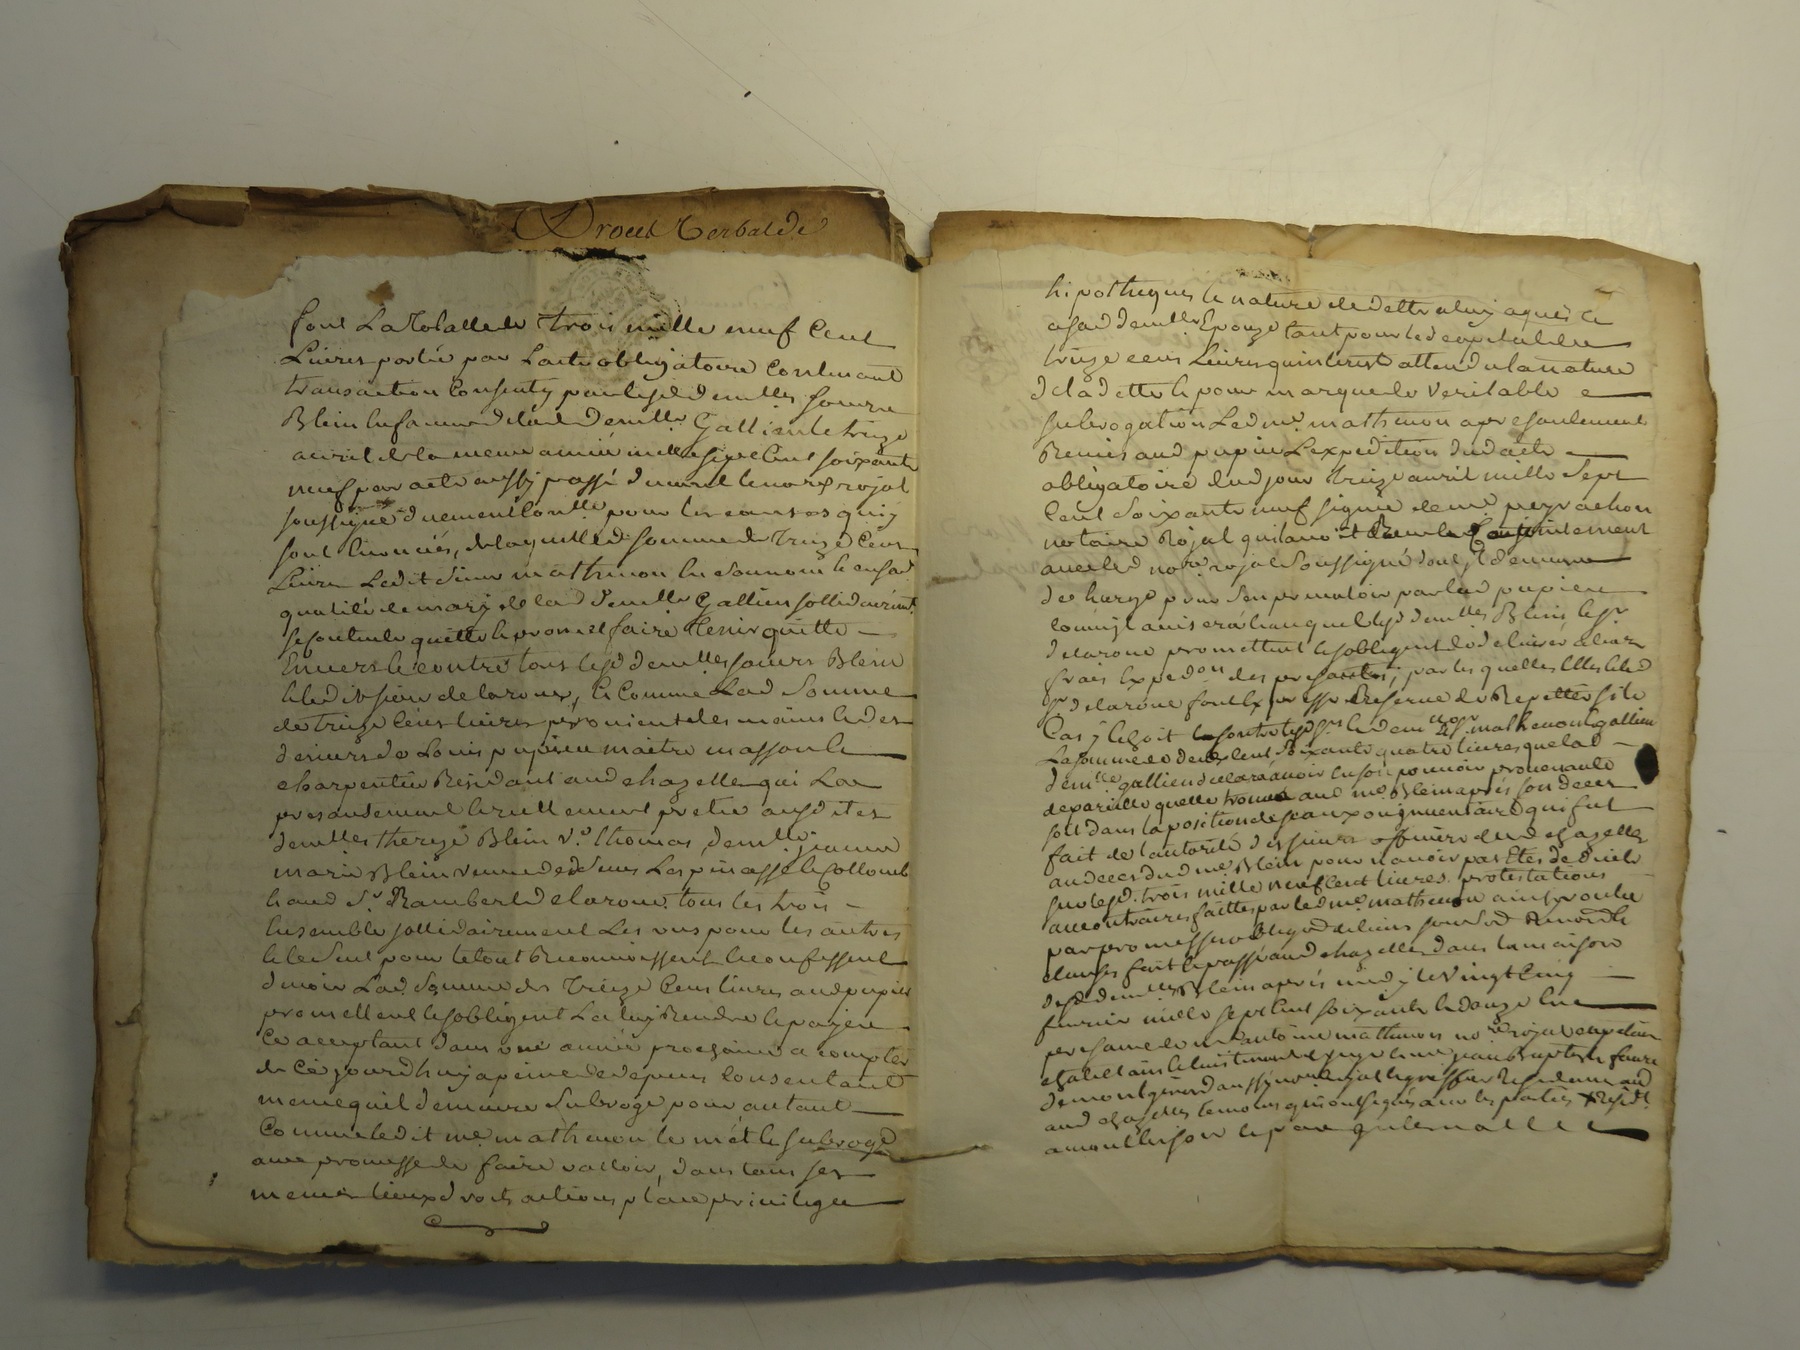 Procès Verbal de
font La Totalle de trois mille neuf Cent
Livres portée par L'acte obligatoire Contenant
transaction Consenty par lesd demlles soeurs
Blein en faveur de lad demlle Gallien le treize
avril de la meme année mille sept Cent soixante
neuf par acte aussy passé devant le nore royal
soussigné duement Conllé pour les causes quiy
sont Enoncés, de laquelle de somme de Treize Cens
Livres Ledit sieur mathevon en son nom & en sad
qualité de mary de lad demlle Gallien sollidairemt
se contente quitte & promet faire tenir quitte
Envers & contre tous lesd demlles soeurs Blein
& led sieur delaroue, & Comme Lad Somme
de treize Cens livres provient des mains & des
deniers de Louis pupier maitre masson &
charpentier Residant aud chazelle qui La
presentement & reellement pretée ausdites
demlles therese Blein ve thomas, demlle jeanne
marie Blein veuve de sieur Lespinasse & Collomb
& aud Sr Rambert delaroue tous les trois
Ensemble sollidairement Les uns pour les autres
& le seul pour le tout Reconnoissent & confessent
devoir Lad Somme de Treize Cens livres aud pupier
promettent & sobligent La luy Rendre & payer
Ce acceptant dans une année prochaine a compter
de Cejourdhuy a peine de depens Consentant
meme quil demeure Subrogé pour autant
Comme ledit me mathevon le met & subroge
avec promesse de faire valloir, dans tous ses
memes lieux droits actions place privilege
hipotheques & nature de dette a luy aquis &
asad demlle Epouze tant pour led capital de
treize cens Livres quinterest attendu la nature
de lad dette & pour marque de veritable
subrogation Led me mathevon a presentement
Remis aud pupier L'expedition dud acte
obligatoire dud jour treize avril mille Sept
Cent Soixante neuf signée de me peyrachon
notaire Royal qui lavoit Receu Conjointement
avec led nore royal Soussigné dont il demeure
dechargé pour Sen prevaloir par led pupier
comme il avisera auquel lesd demlles Blein & sr
delaroue promettent & sobligent de delivrer a leurs
frais Expedon des presentes, par les quelles Elles & led
sr delaroue font Expresse Reserve de Repetter sile
Cas y Echoit contre lesd srs & demlle mathevon & gallien
La somme de deux Cent Soixante quatre livres que lad
demlle gallien declara avoir En son pouvoir provenante
de pareille quelle trouva aud me Blein après son deces
soit dans laposition de sceaux ou inventaire qui fut
fait de lautorité des sieurs officiers dud chazelles
au deces dud me Blein pour n'avoir pas Eté deduite
sur lesd trois mille neuf Cent livres protestations
au contraire faittes par led me mathevon ainsy voulu
par promesse obligaon de biens soumissions Renon &
clauses fait & passé aud chazelles dans la maison
desd demlles Blein après midy le vingt Cinq
fevrier mille Sept Cent soixante & douze En
presence de me antoine mathevon nore royal capitaine
chatelain & me jean Baptiste faure
demontgirard aussy nore royal & greffier Residant aud
aud chazelles temoins qui ont signés avec les parties